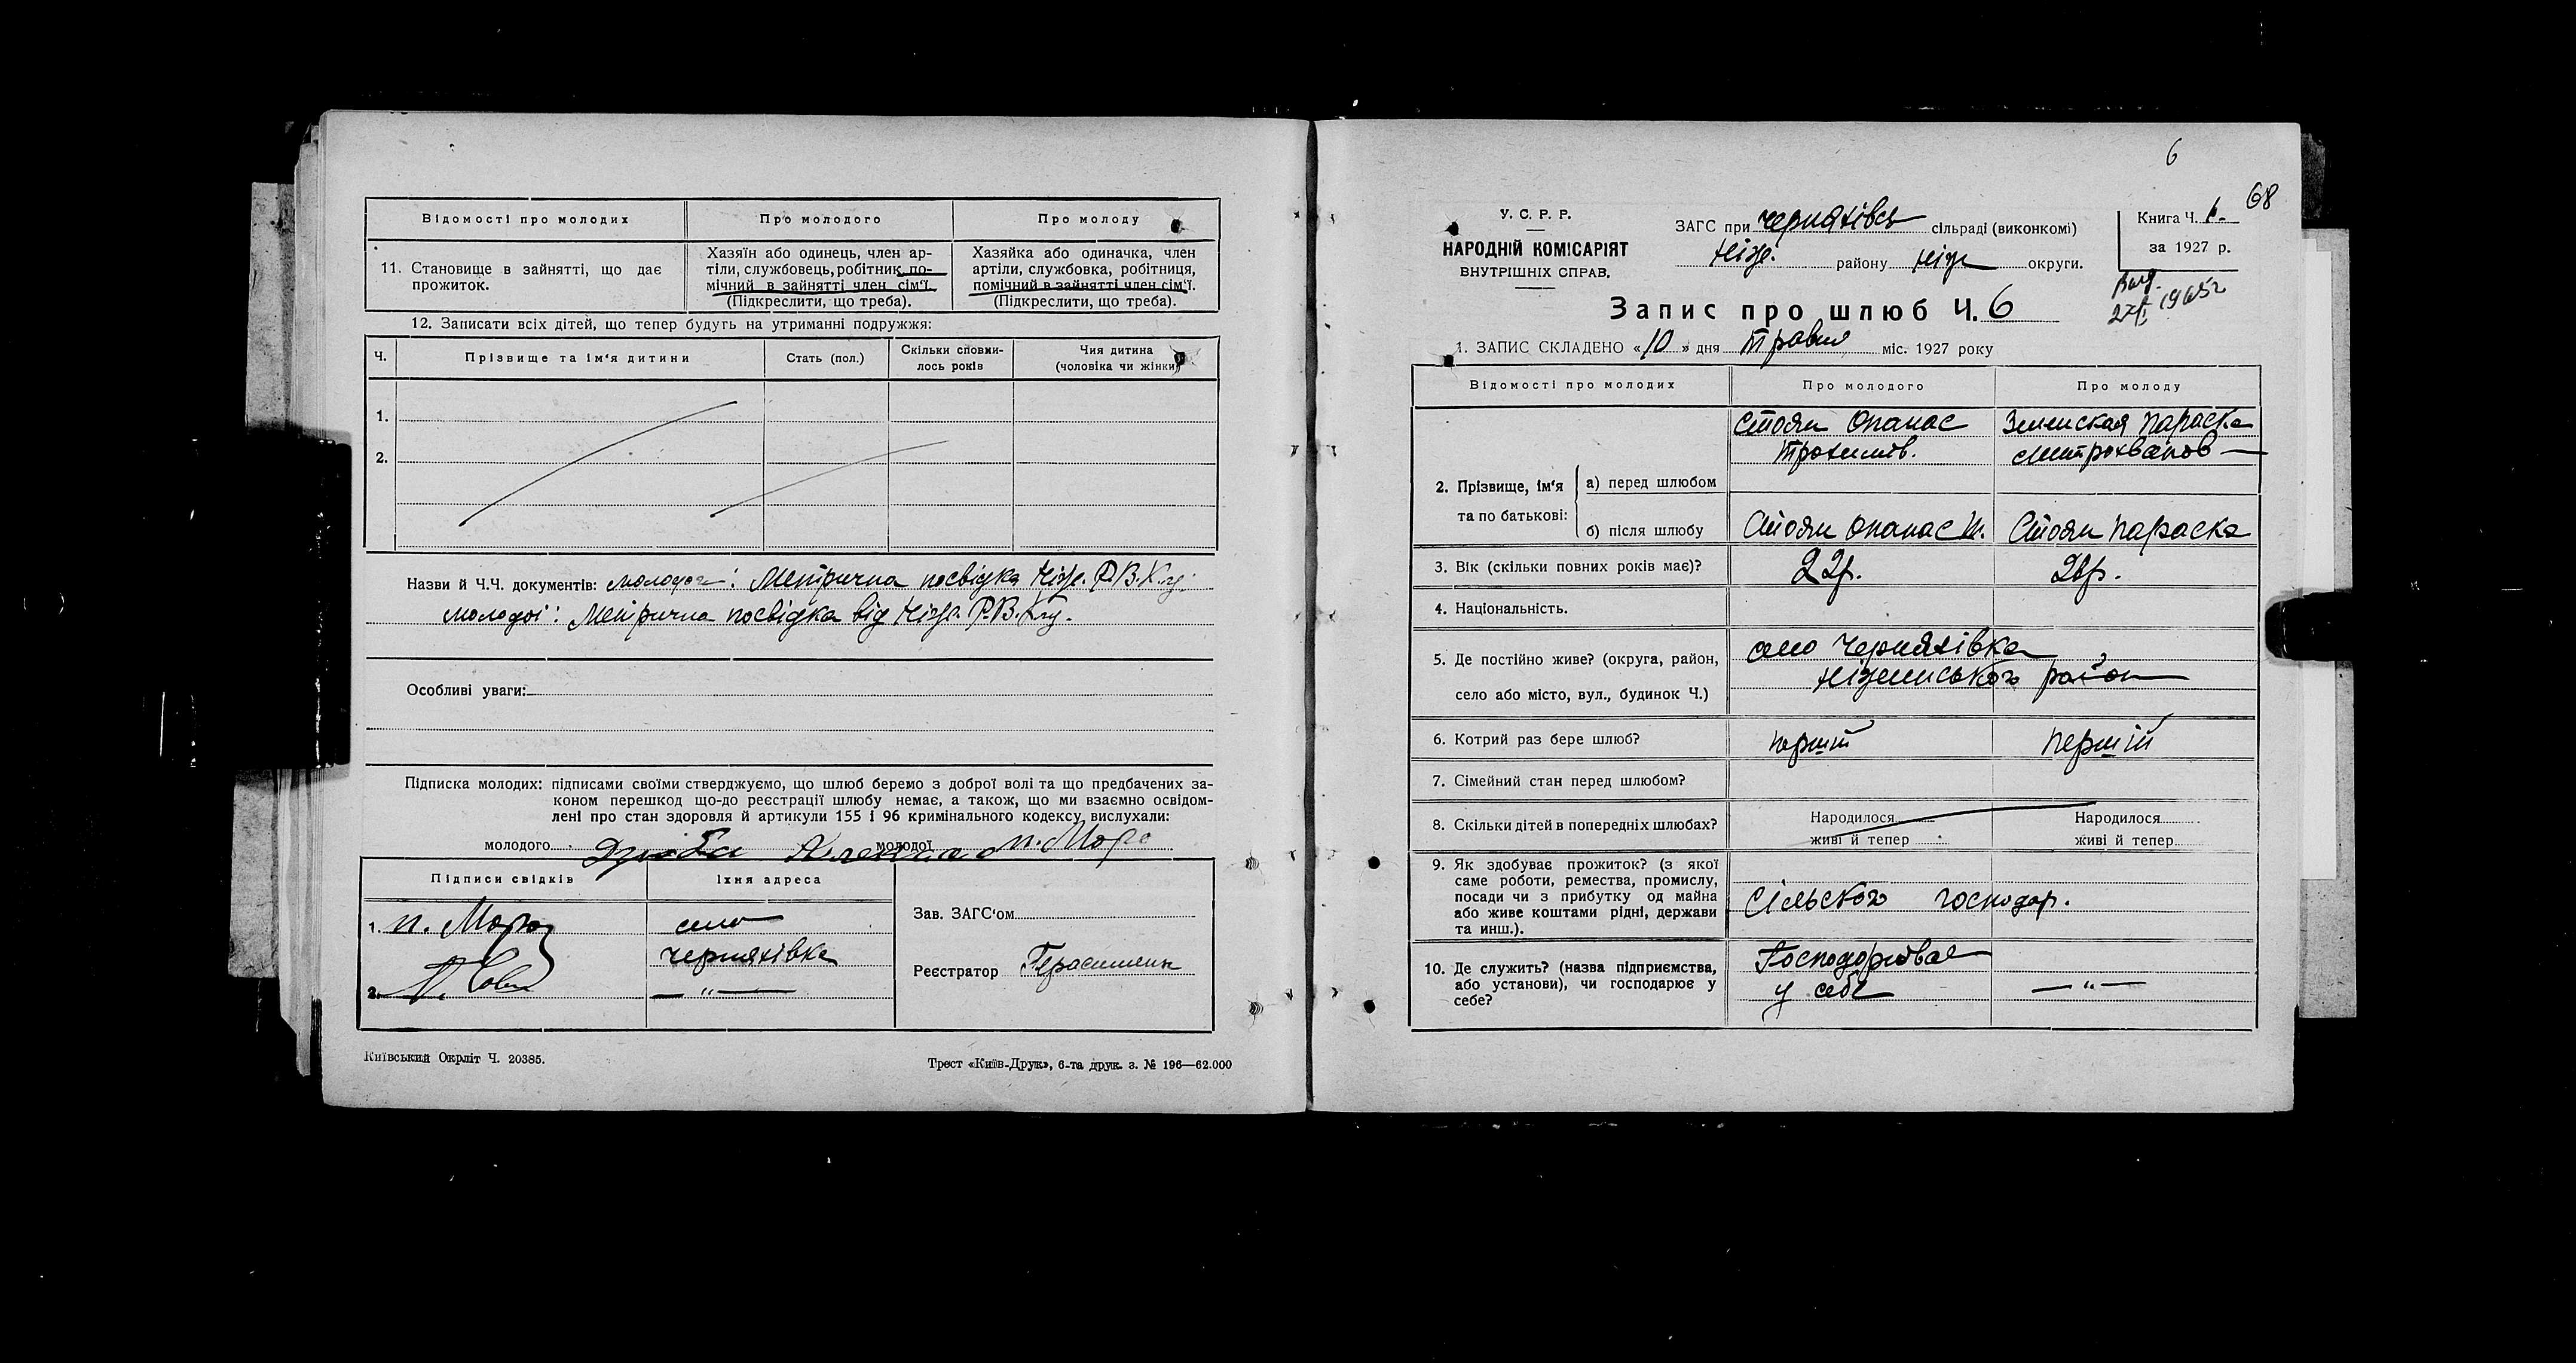 Відомості про молодих
Про молодого
Про молоду
11. Становище в зайнятті, що дає
прожиток.
Хазяїн або одинець, член ар-
тіли, службовець, робітник, по-
мічний в зайнятті член сім'ї.
(Підкреслити, що треба).
Хазяйка або одиначка, член
артіли, службовка, робітниця,
помічний в зайнятті член сім'ї.
(Підкреслити, що треба).
12. Записати всіх дітей, що тепер будуть на утриманні подружжя:
Ч.
Прізвище та ім'я дитини
Стать (пол.)
Скільки сповни-
лось років
Чия дитина
(чоловіка чи жінки)
1.
2.
Назви й Ч.Ч. документів: молодого: Метрична посвідка Ніж. Р.В.К.
молодої: Метрична посвідка від Ніж. Р.В.К.
Особливі уваги:
Підписка молодих: підписами своїми стверджуємо, що шлюб беремо з доброї волі та що предбачених за-
коном перешкод що-до реєстрації шлюбу немає, а також, що ми взаємно освідом-
лені про стан здоровля й артикули 155 і 96 кримінального кодексу вислухали:
молодого Дзюба молодої п. Моро
Підписи свідків
Їхня адреса
1. п. Мороз
село
Черняхівка
2.
— " —
Зав. ЗАГС'ом
Реєстратор Герасименк
Київський Окрліт Ч. 20385.
Трест «Київ-Друк», 6-та друк. з. № 196—62.000
6
68
У. С. Р. Р.
НАРОДНІЙ КОМІСАРІЯТ
ВНУТРІШНІХ СПРАВ.
ЗАГС при Черняхівсь сільраді (виконкомі)
Ніж. району Ніж округи.
Книга Ч. 1.
за 1927 р.
1965г
Запис про шлюб Ч. 6
1. ЗАПИС СКЛАДЕНО «10» дня травня міс. 1927 року
Відомості про молодих
Про молодого
Про молоду
2. Прізвище, ім'я
та по батькові:
а) перед шлюбом
Стоян Опанас
Трохимів.
Зеленская Параска
Митрохванов
б) після шлюбу
Стоян Опанас Т.
Стоян Параска
3. Вік (скільки повних років має)?
22р.
4. Національність.
5. Де постійно живе? (округа, район,
село або місто, вул., будинок Ч.)
село Черняхівка
Ніженського район
6. Котрий раз бере шлюб?
перший
першій
7. Сімейний стан перед шлюбом?
8. Скільки дітей в попередніх шлюбах?
Народилося
живі й тепер
Народилося
живі й тепер
9. Як здобуває прожиток? (з якої
саме роботи, ремества, промислу,
посади чи з прибутку од майна
або живе коштами рідні, держави
та инш.).
Сільского господар.
10. Де служить? (назва підприємства,
або установи), чи господарює у
себе?
Господорював
у себе
— " —